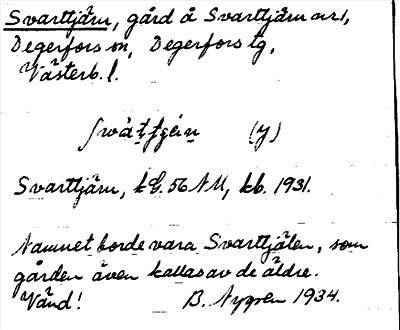 Svarttjärn, gård å Svarttjärn nr 1,
Degerfors sn, Degerfors tg,
Västerb. l.
(y)
Svarttjärn, k E. 56 NU, kb. 1931.
Namnet borde vara Svarttjälen, som
gården även kallas av de äldre.
Vänd! B. Nygren 1934.